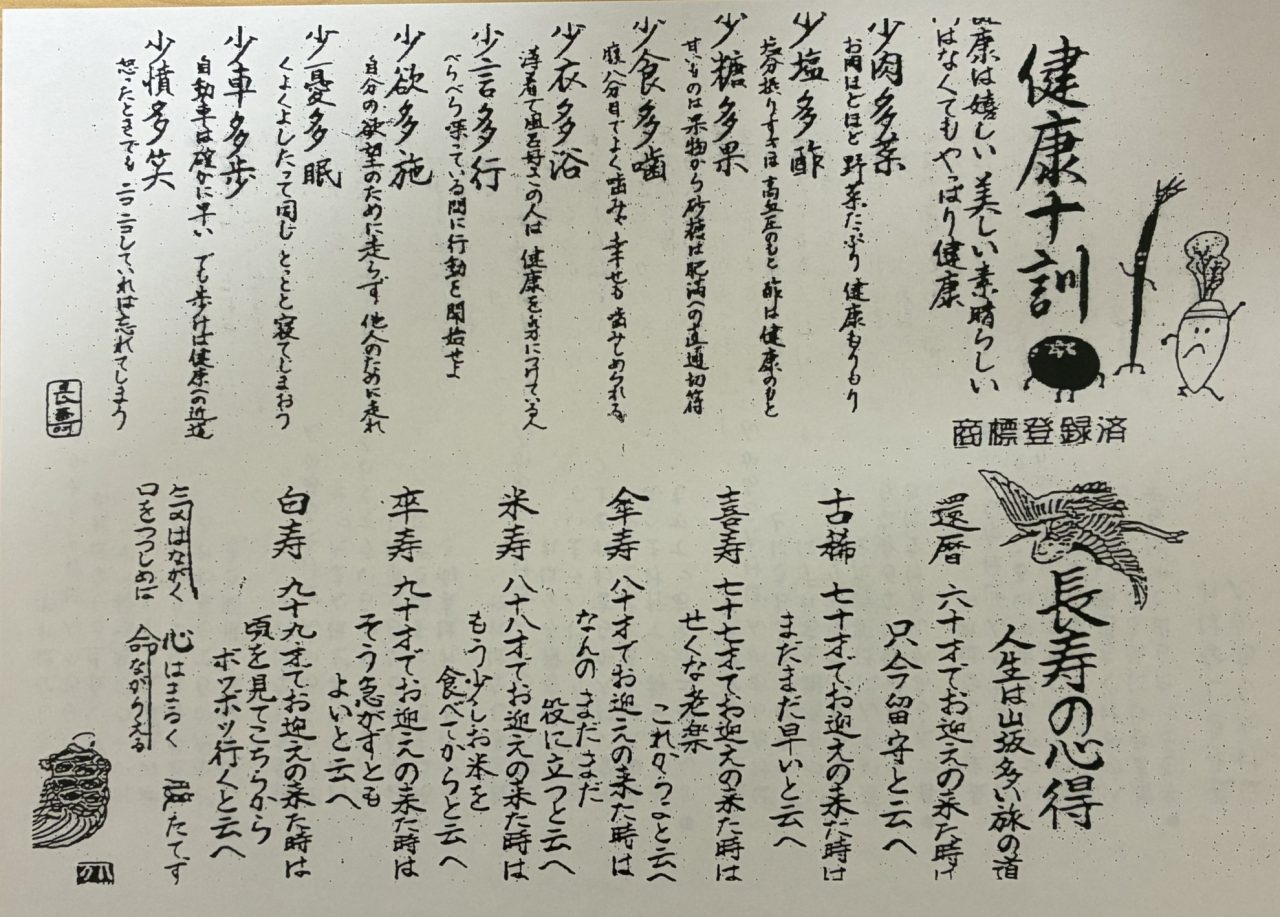 健康十訓
健康は嬉しい 美しい 素晴らしい
何はなくてもやっぱり健康
少肉多菜
お肉ほどほど 野菜たっぷり 健康もりもり
少塩多酢
塩分摂りすぎは 高血圧のもと 酢は健康のもと
少糖多果
甘いものは果物から 砂糖は肥満への直通切符
少食多噛
腹八分目でよく歯みゃ 幸せも 歯みしめられる
少衣多浴
薄着で風呂好きの人は 健康を身につけている人
少言多行
べらべら喋っている間に行動を開始せよ
少欲多施
自分の欲望のために走らず 他人のために走れ
少憂多眠
くよくよしたって同じ とっとと寝てしまおう
少車多歩
自動車は確かに早い でも歩けば健康への近道
少憤多笑
怒ったときでも ニコニコしていれば忘れてしまう
商標登録済
長寿の心得
人生は山坂多い旅の道
還暦 六十才でお迎えの来た時は
只今留守と云へ
古稀 七十才でお迎えの来た時は
まだまだ早いと云へ
喜寿 七十七才でお迎えの来た時は
せくな老楽
これからよと云へ
傘寿 八十才でお迎えの来た時は
なんのまだまだ
役に立つと云へ
米寿 八十八才でお迎えの来た時は
もう少しお米を
食べてからと云へ
卒寿 九十才でお迎えの来た時は
そう急がずとも
よいと云へ
白寿 九十九才でお迎えの来た時は
頃を見てこちらから
ボツボツ行くと云へ
気はながく 心はまるく 腹たてず
口をつつしめば 命ながらえる